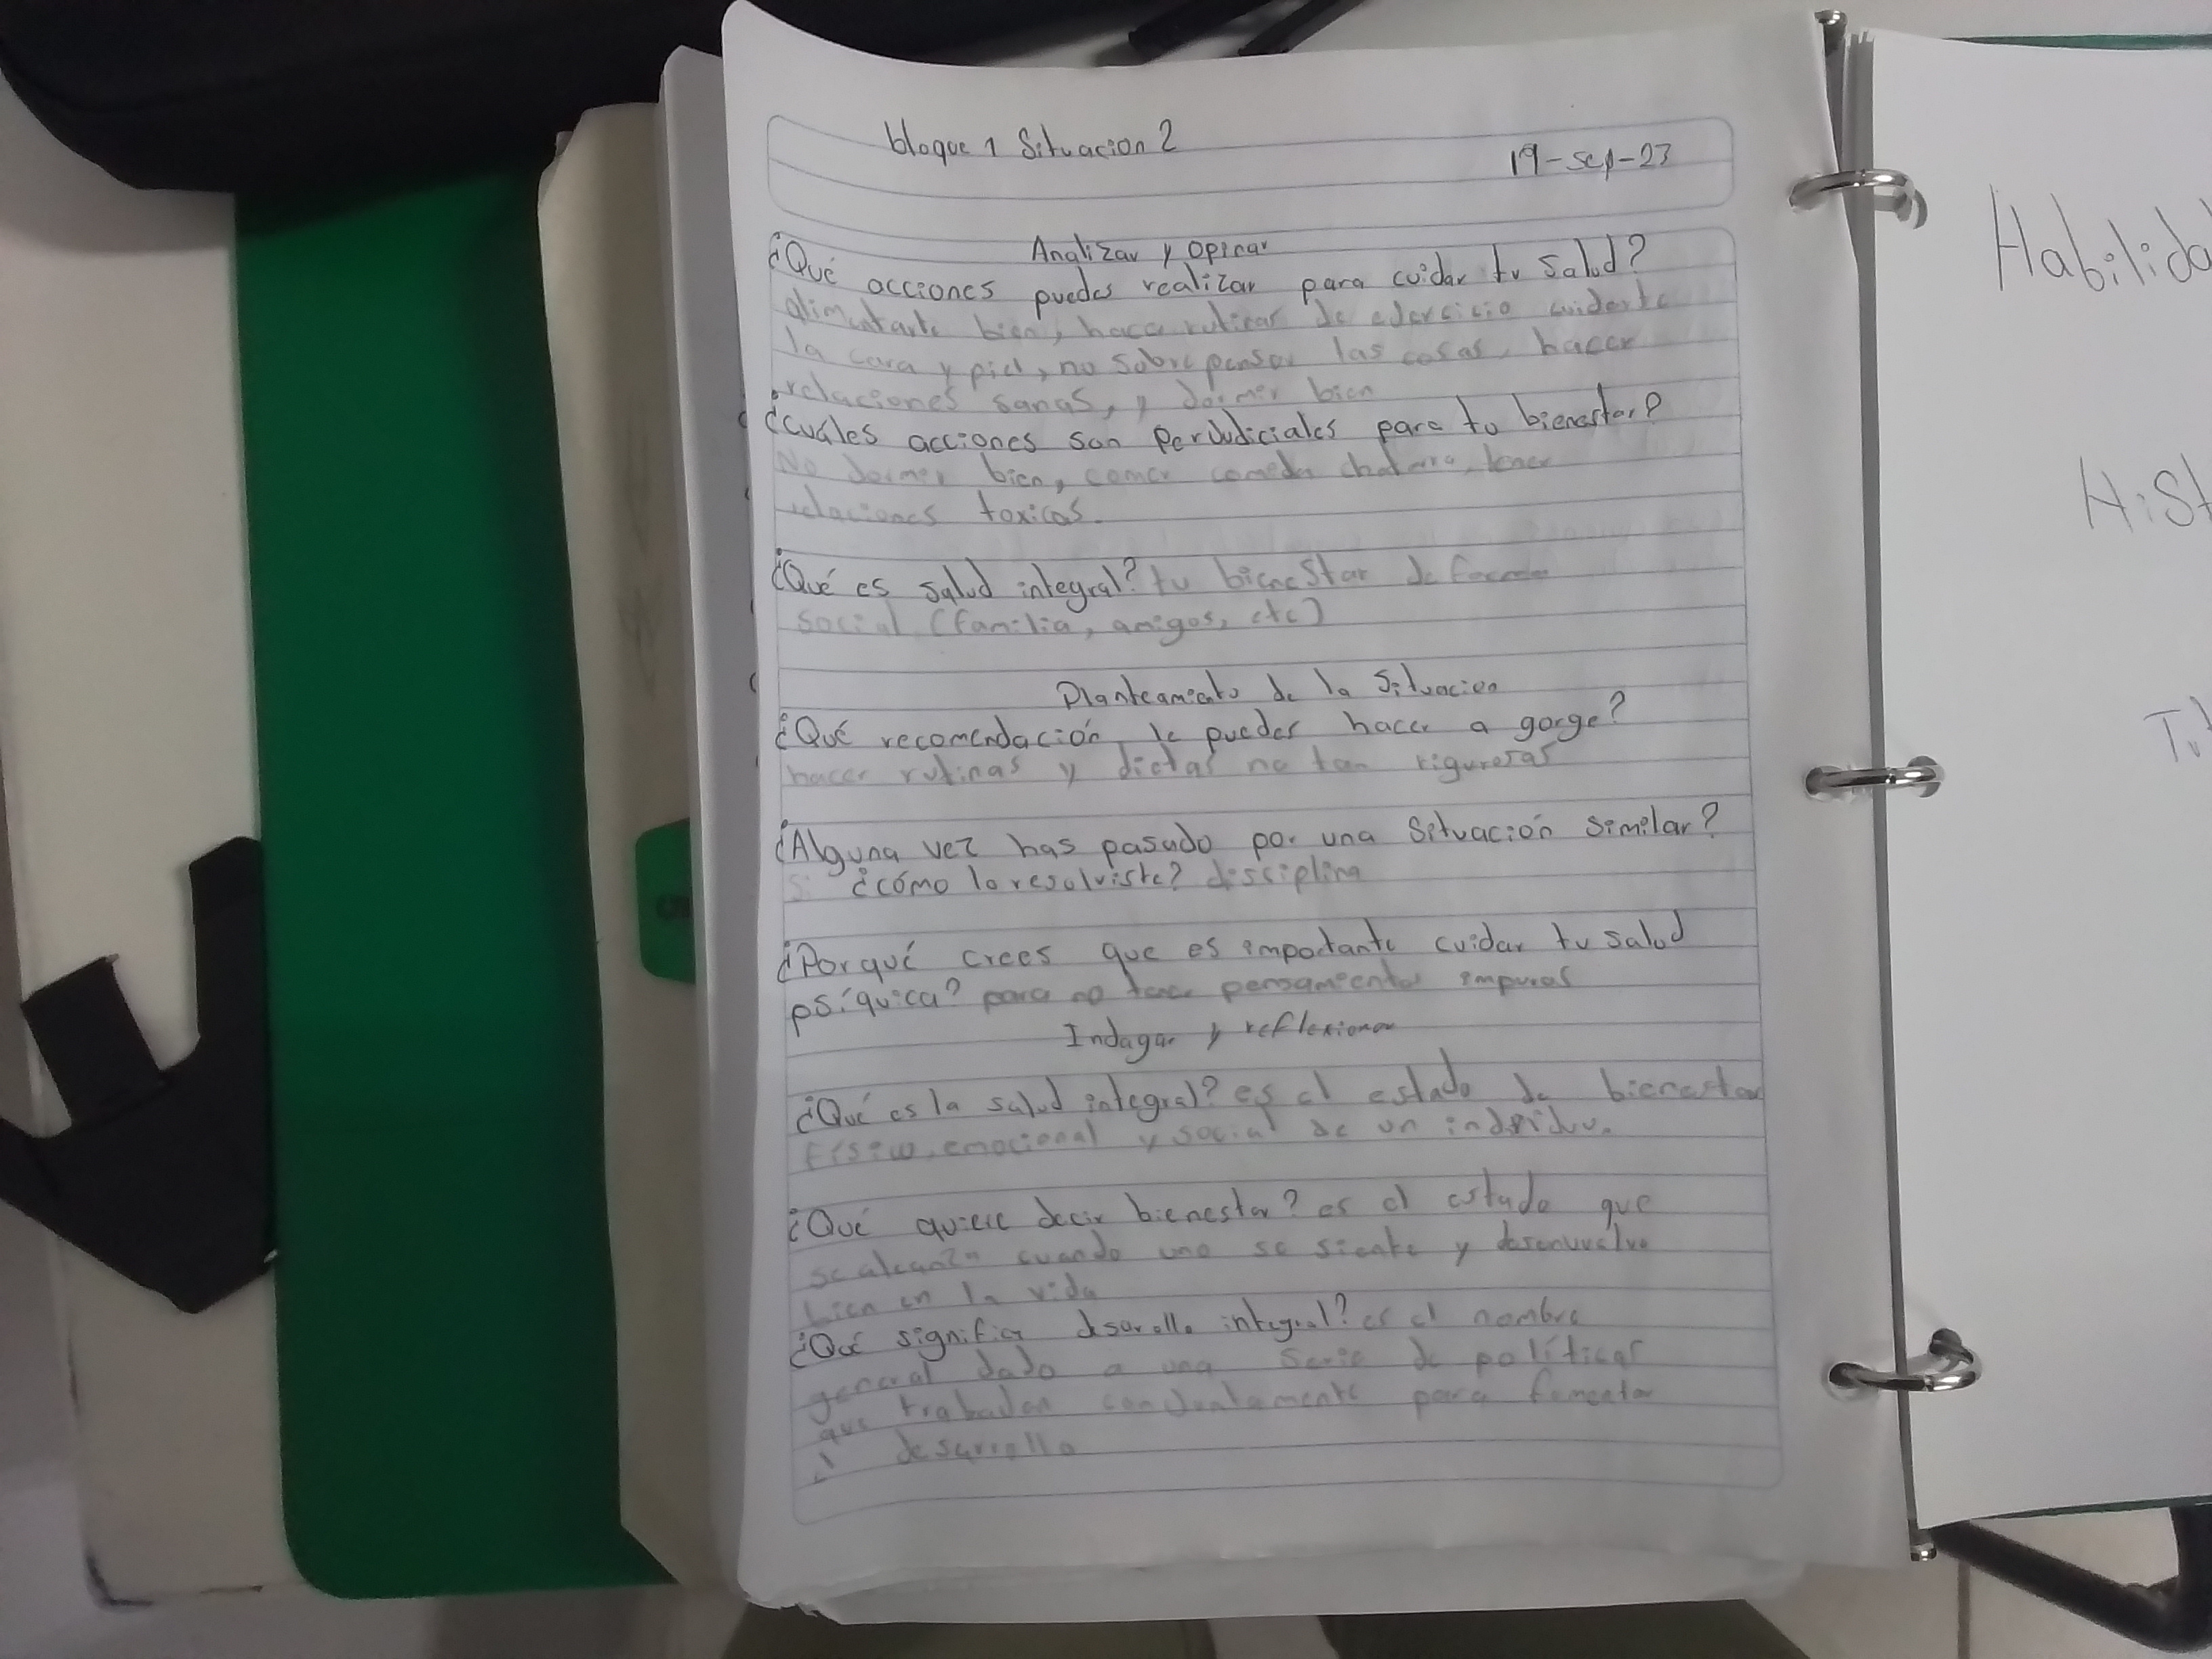 bloque 1 Situacion 2
19-sep-23
Analizar y opinar
¿Qué acciones puedes realizar para cuidar tu salud?
alimentarte bien, hacer rutinas de edercicio cuidarte
la cara y piel, no sobre pensar las cosas, hacer
relaciones sanas, y dormir bien
¿cuáles acciones son perdudiciales para tu bienestar?
No dormir bien, comer comida chatarra, tener
relaciones toxicas.
¿Qué es salud integral? tu bienestar de forma
social (familia, amigos, etc)
Planteamiento de la Situacion
¿Qué recomendación le puedes hacer a gorge?
hacer rutinas y dietas no tan riguresas
¿Alguna vez has pasado por una Situación similar?
Si ¿cómo lo resolviste? disciplina
¿Porqué crees que es importante cuidar tu salud
psíquica? para no tener pensamientos impuros
Indagar y reflexionar
¿Qué es la salud integral? es el estado de bienestar
físico, emocional y social de un individuo.
¿Qué quiere decir bienestar? es el estado que
se alcanza cuando uno se siente y desenvuelve
bien en la vida
¿Qué significa desarollo integral? es el nombre
general dado a una serie de políticas
que trabadan condentamente para fomentar
el desarrollo
Habilida
Hist
Tu